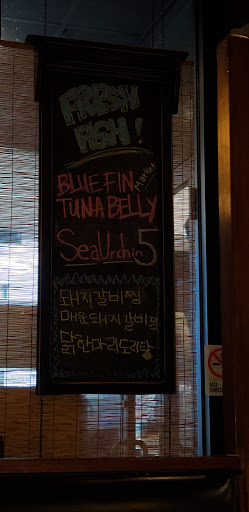 FRESH
FISH!
BLUE FIN
TUNA BELLY
Market
Sea Urchin 5
돼지갈비찜
매운돼지갈비찜
닭한마리도리탕
NO
SMOKING